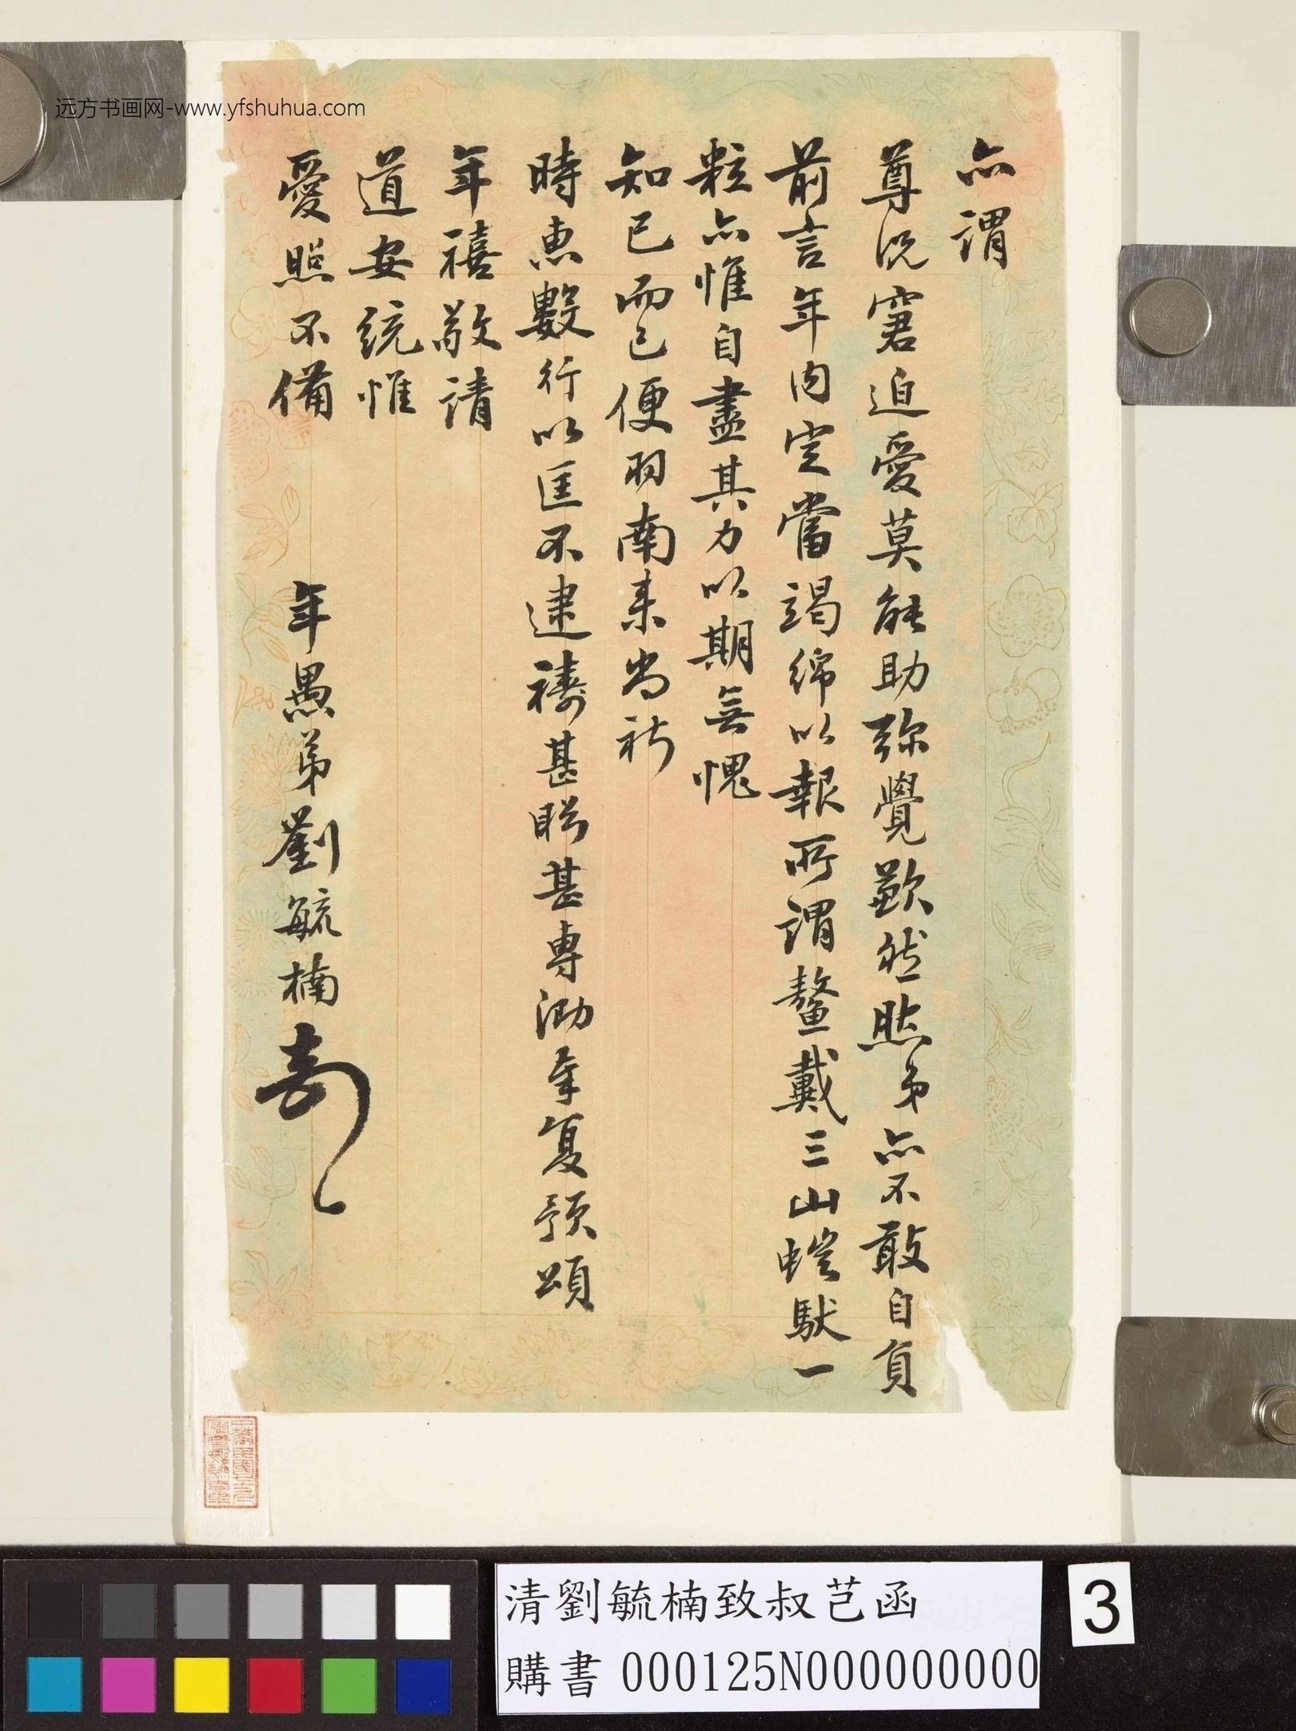 远方书画网-www.yfshuhua.com
亦謂
尊況窘迫愛莫能助彌覺歉然然弟亦不敢自負
前言年內定當竭綿以報所謂鰲戴三山蟻馱一
粒亦惟自盡其力以期無愧
知己而已便羽南來尚祈
時惠數行以匡不逮禱甚盼甚專泐奉復預頌
年禧敬請
道安統惟
愛照不備
年愚弟劉毓楠
清劉毓楠致叔芑函
購書 000125N000000000
3